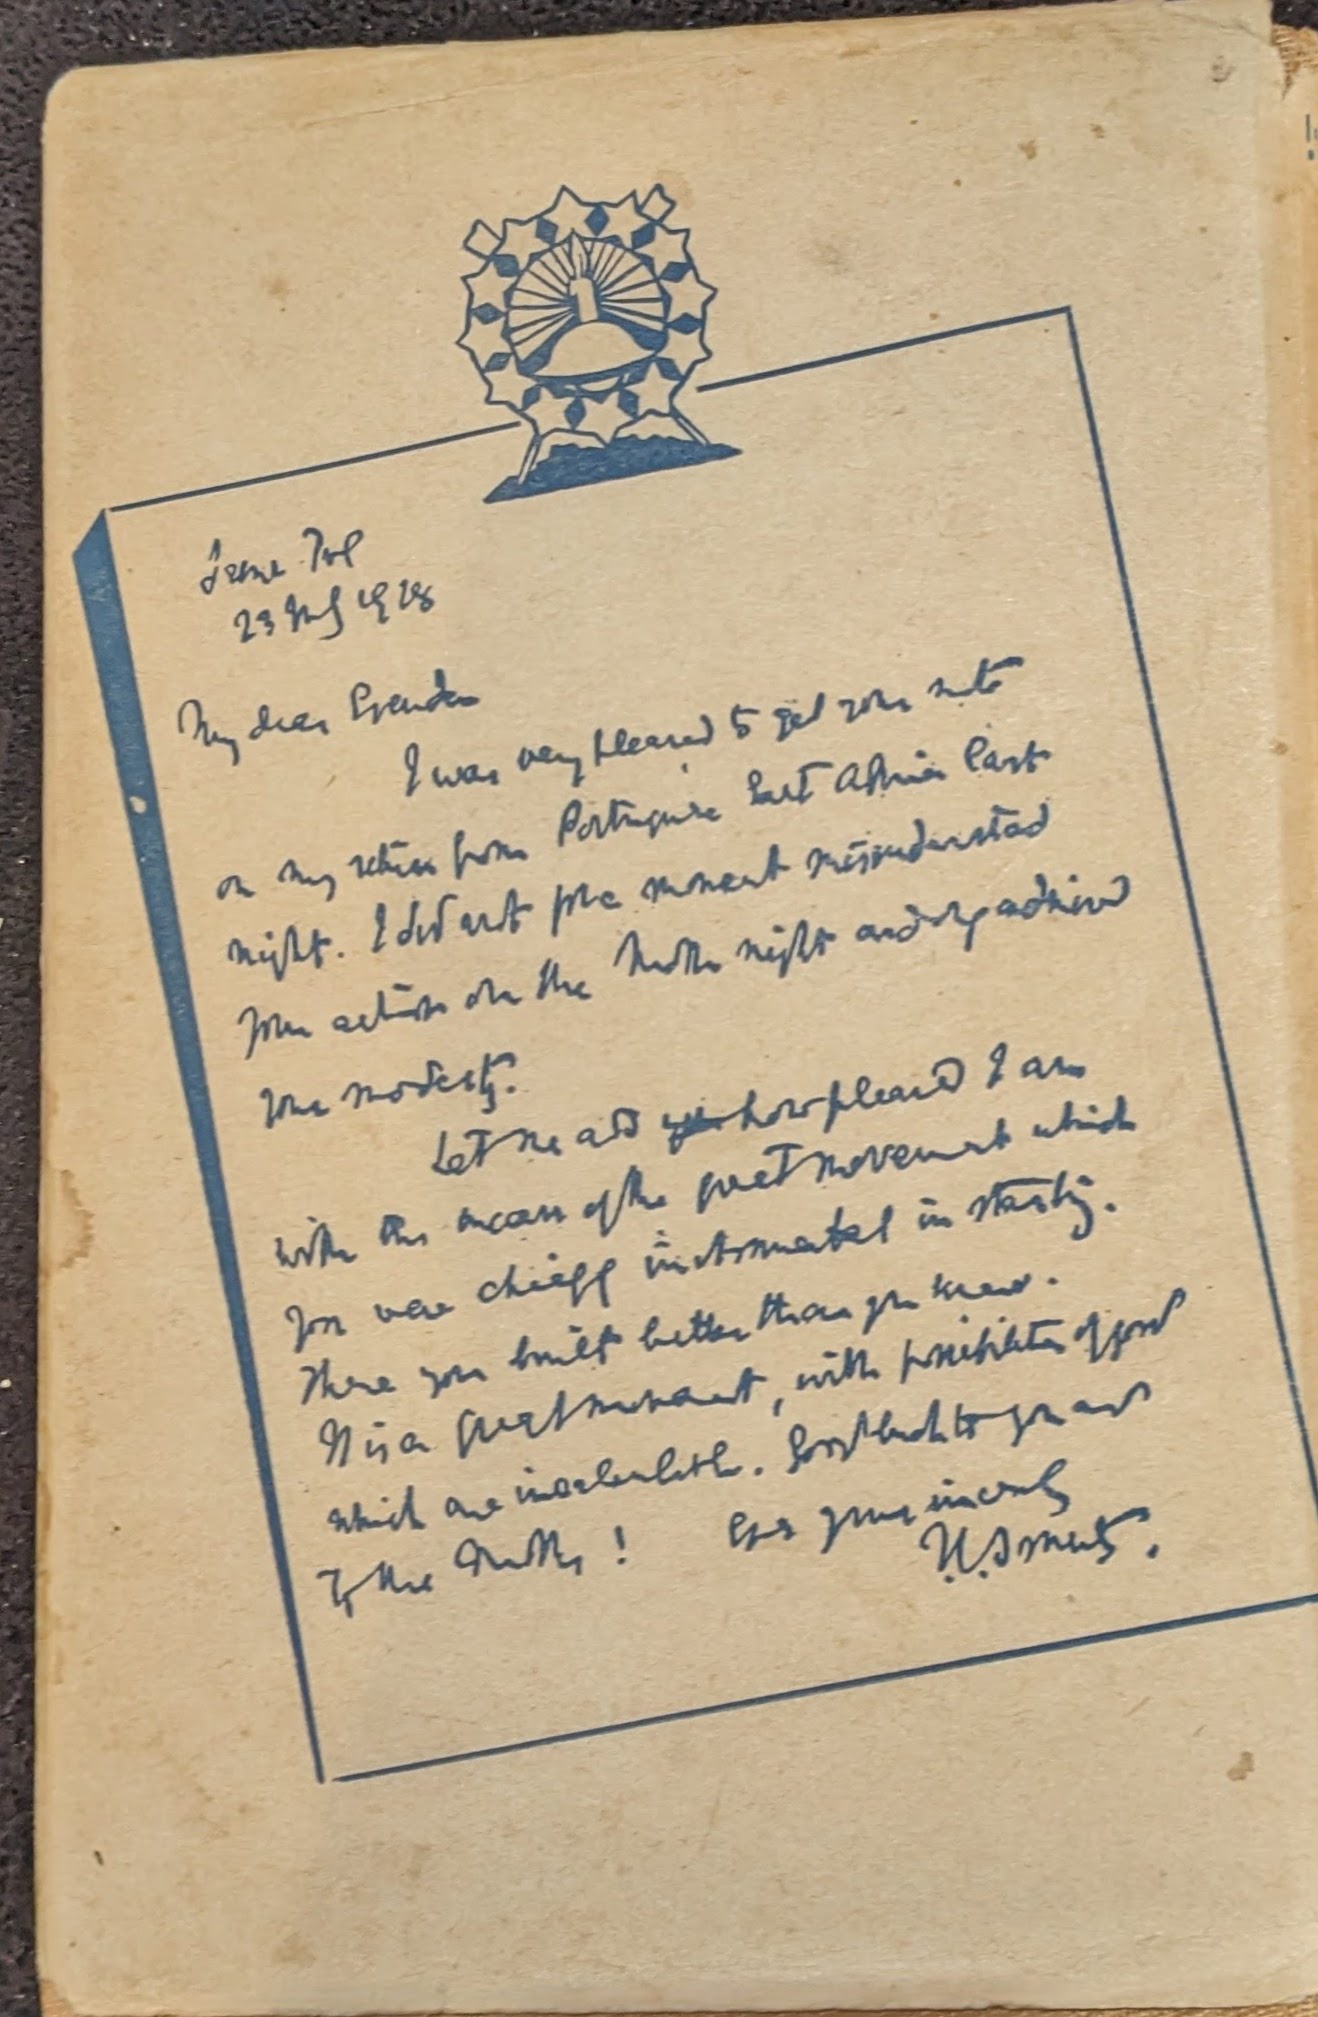 Irene Tvl
23 July 1928
My dear Evenden
I was very pleased to get your note
on my return from Portuguese East Africa last
night. I did not for a moment misunderstand
your action on the Moths night and only admired
your modesty.
Let me add how pleased I am
with the success of the great movement which
you were chiefly instrumental in starting.
There you built better than you knew.
It is a great movement, with possibilities of good
which are incalculable. Good luck to you and
to the Moths! Ever yours sincerely
J.C. Smuts.